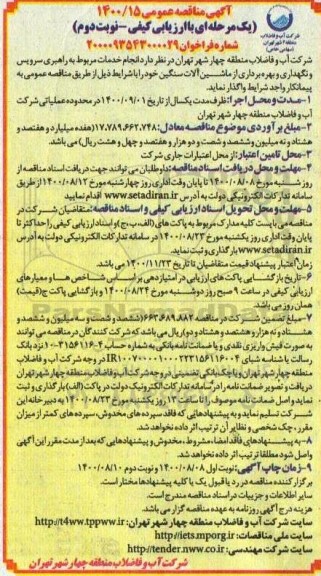 شرکت آب و فاضلاب
منطقه ۴ شهر تهران
(سهامی خاص)
آگهی مناقصه عمومی ۱۴۰۰/۱۵
(یک مرحله‌ای با ارزیابی کیفی - نوبت دوم)
شماره فراخوان ۲۰۰۰۰۹۳۵۴۳۰۰۰۰۲۹
شرکت آب و فاضلاب منطقه چهار شهر تهران در نظر دارد انجام خدمات مربوط به راهبری سرویس
و نگهداری و بهره برداری از ماشین آلات سنگین خود را با شرایط ذیل از طریق مناقصه عمومی به
پیمانکار واجد شرایط واگذار نماید.
۱-مدت و محل اجرا: ظرف مدت یکسال از تاریخ ۱۴۰۰/۰۹/۰۱ در محدوده عملیاتی شرکت
آب و فاضلاب منطقه چهار شهر تهران.
۲-مبلغ برآوردی موضوع مناقصه معادل: ۱۷،۷۸۹،۶۶۲،۷۴۸ (هفده میلیارد و هفتصد و
هشتاد و نه میلیون و ششصد و شصت و دو هزار و هفتصد و چهل و هشت ریال) می باشد.
۳-محل تامین اعتبار: از محل اعتبارات جاری شرکت
۴-مهلت و محل دریافت اسناد مناقصه: داوطلبان می توانند جهت دریافت اسناد مناقصه از
روز شنبه مورخ ۱۴۰۰/۰۸/۰۸ تا پایان وقت اداری روز چهارشنبه مورخ ۱۴۰۰/۰۸/۱۲ از طریق
سامانه تدارکات الکترونیکی دولت به آدرس www.setadiran.ir اقدام نمایید
۵-مهلت و محل تحویل اسناد ارزیابی کیفی و اسناد مناقصه: متقاضیان شرکت در
مناقصه می بایست کلیه مدارک مربوط به پاکت های (الف،ب،ج) و اسناد ارزیابی کیفی را حداکثر تا
پایان وقت اداری روز یکشنبه مورخ ۱۴۰۰/۰۸/۲۳ در سامانه تدارکات الکترونیکی دولت به آدرس
www.setadiran.ir بارگذاری و ثبت نماید.
زمان اعتبار پیشنهاد قیمت متقاضیان تا تاریخ ۱۴۰۰/۱۱/۲۳ می باشد.
۶-تاریخ بازگشایی پاکت های ارزیابی در امتیازدهی بر اساس شاخص ها و معیارهای
ارزیابی کیفی در ساعت ۹ صبح روز دوشنبه مورخ ۱۴۰۰/۰۸/۲۴ و بازگشایی پاکت ج(قیمت)
همان روز می باشد.
۷-مبلغ تضمین شرکت در مناقصه ۶۶۳،۶۸۹،۸۸۲ (ششصد و شصت و سه میلیون و ششصد و
هشتاد و نه هزار و هشتصد و هشتاد و دو) ریال می باشد که شرکت کنندگان در مناقصه می توانند
به صورت فیش واریزی نقدی و یا ضمانت نامه بانکی به شماره حساب
رسالت یا شناسه شبای در وجه شرکت آب و فاضلاب
منطقه چهار شهر تهران و یا چک بانکی تضمینی در وجه شرکت آب و فاضلاب منطقه چهار شهر تهران
دریافت و تصویر ضمانت نامه را در سامانه تدارکات الکترونیک دولت در پاکت (الف) بارگذاری و ثبت
نماید و اصل ضمانت نامه موصوف را تا ساعت ۱۳ روز یکشنبه مورخ ۱۴۰۰/۰۸/۲۳ به دبیرخانه این
شرکت تسلیم نماید و به پیشنهادهایی که فاقد سپرده های مخدوش، سپرده های کمتر از میزان
مقرر، چک شخصی و نظایر آن ترتیب اثر داده نخواهد شد.
۸- به پیشنهادهای فاقد امضا، مشروط، مخدوش و پیشنهادهایی که بعد از مدت مقرر این آگهی
واصل شود مطلقا ترتیب اثر داده نخواهد شد.
۹-زمان چاپ آگهی: نوبت اول ۱۴۰۰/۰۸/۰۸ و نوبت دوم ۱۴۰۰/۰۸/۱۰
برگزار کننده مناقصه در رد یا قبول یک یا کلیه پیشنهادها مختار است.
سایر اطلاعات و جزییات در اسناد مناقصه مندرج است.
هزینه درج آگهی روزنامه به عهده مناقصه گزار می باشد.
سایت شرکت آب و فاضلاب منطقه چهار شهر تهران: http://t4ww.tppww.ir
سایت ملی مناقصات: http://iets.mporg.ir
سایت شرکت مهندسی: http://tender.nww.co.ir
شرکت آب و فاضلاب منطقه چهار شهر تهران